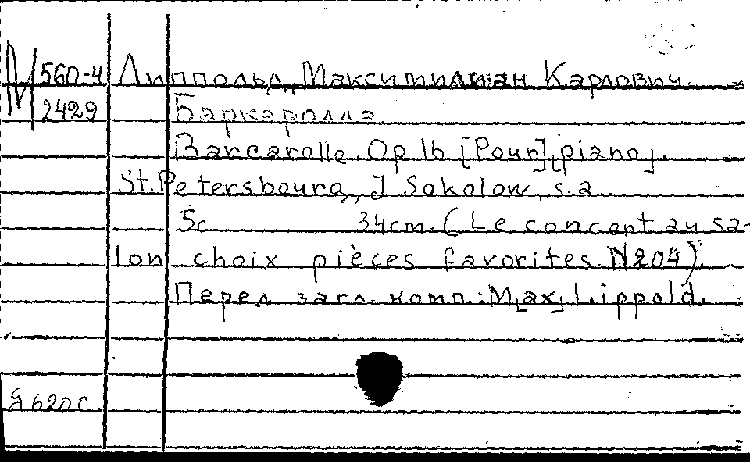 М 560-4 Липпольд, Максимилиан Карлович.
2429 Баркаролла
Barcarolle. Op 16 [Pour] [piano].
St. Petersbourg, J Sokolow, s.a
5с 34cm. (Le concert au sa-
lon choix pièces favorites. N204)
Перед загл. комп.: M[ax] Lippold.
620с